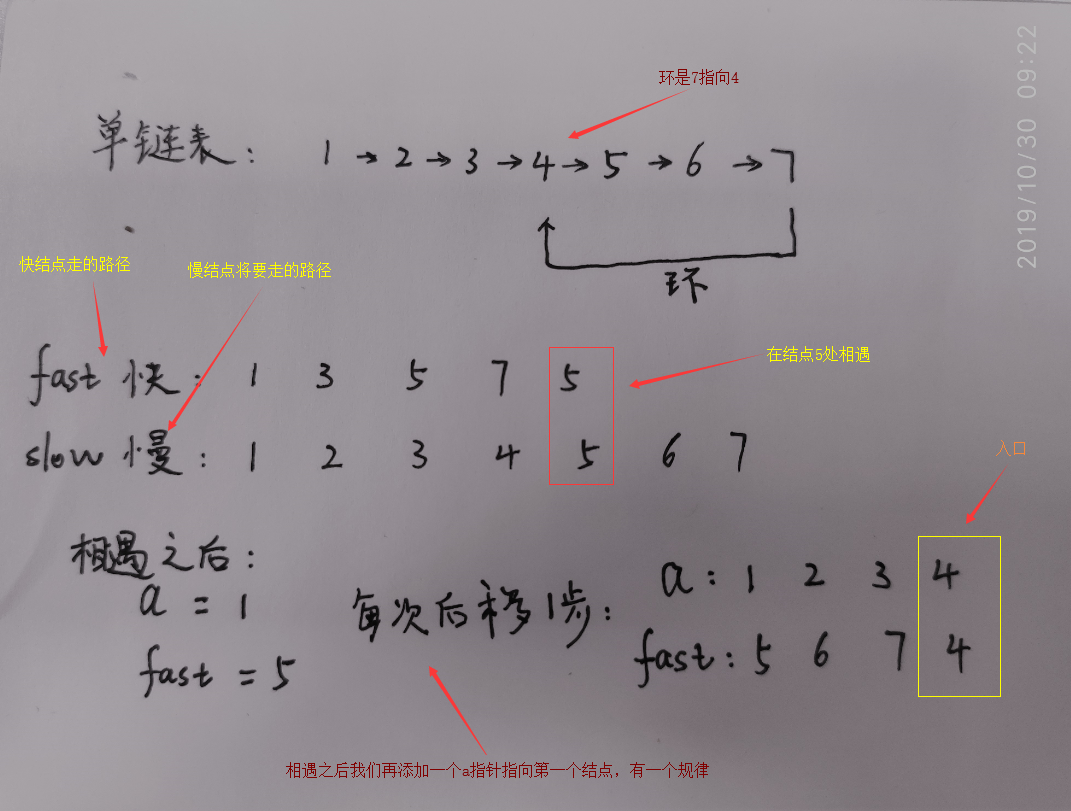 环是7指向4
2019/10/30 09:22
单链表: 1 → 2 → 3 → 4 → 5 → 6 → 7
环
快结点走的路径
慢结点将要走的路径
在结点5处相遇
fast 快: 1 3 5 7 5
slow 慢: 1 2 3 4 5 6 7
入口
相遇之后:
a = 1
fast = 5
每次后移1步:
a: 1 2 3 4
fast: 5 6 7 4
相遇之后我们再添加一个a指针指向第一个结点，有一个规律